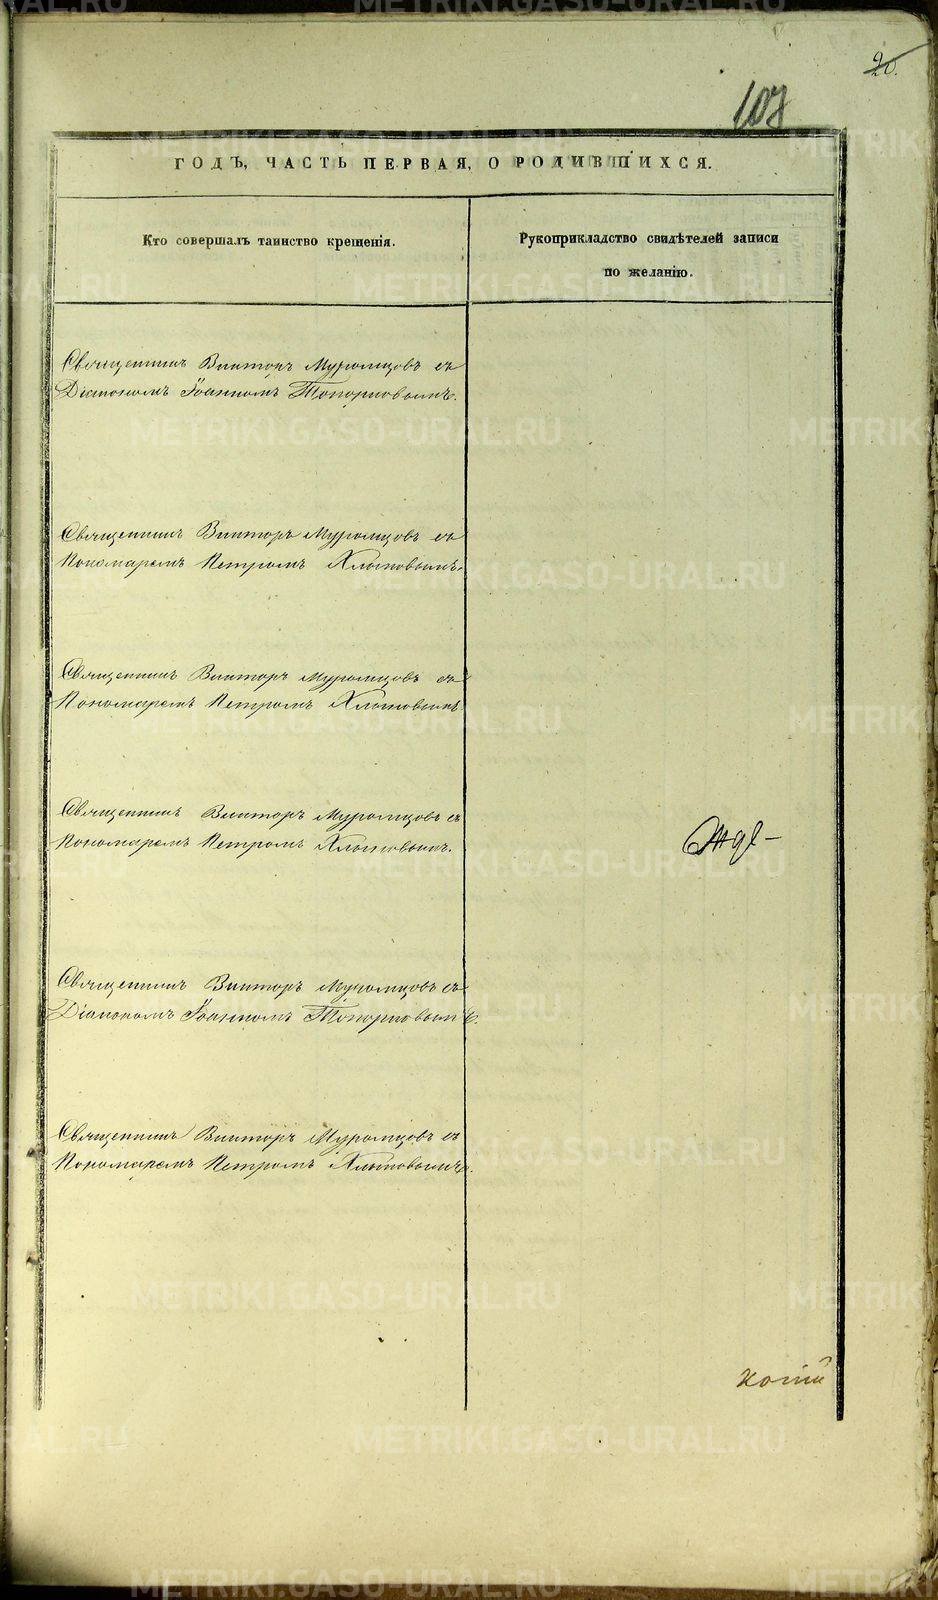 20.
108
ГОДЪ, ЧАСТЬ ПЕРВАЯ, О РОДИВШИХСЯ.
Кто совершалъ таинство крещенія.
Рукоприкладство свидѣтелей записи
по желанію.
Священникъ Викторъ Муромцовъ съ
Діакономъ Іоанномъ Топорковымъ.
Священникъ Викторъ Муромцовъ съ
Пономаремъ Петромъ Хлыновымъ.
Священникъ Викторъ Муромцовъ съ
Пономаремъ Петромъ Хлыновымъ
Священникъ Викторъ Муромцовъ съ
Пономаремъ Петромъ Хлыновымъ.
Священникъ Викторъ Муромцовъ съ
Діакономъ Іоанномъ Топорковымъ.
Священникъ Викторъ Муромцовъ съ
Пономаремъ Петромъ Хлыновымъ.
METRIKI.GASO-URAL.RU